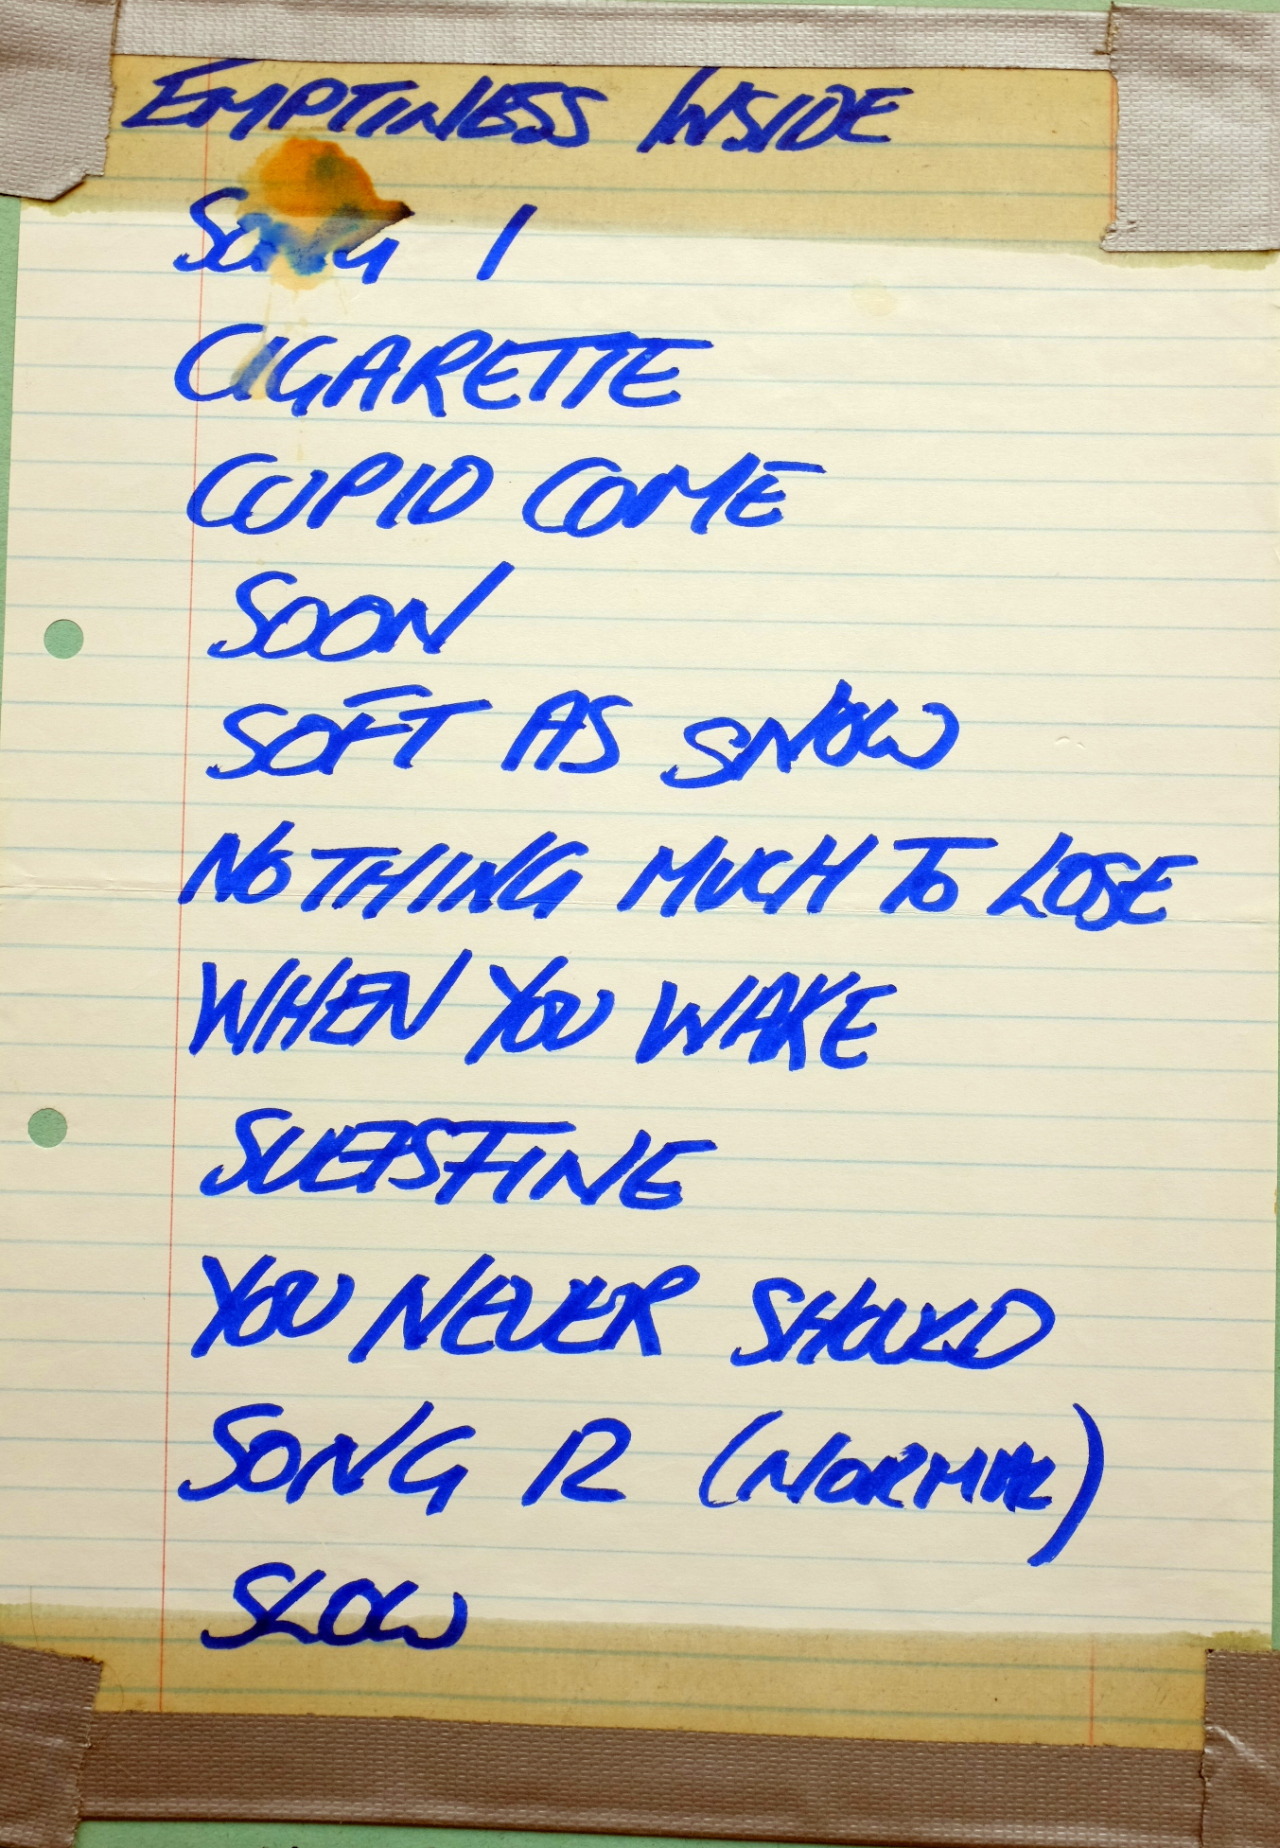 EMPTINESS INSIDE
SONG 1
CIGARETTE
CUPID COME
SOON
SOFT AS SNOW
NOTHING MUCH TO LOSE
WHEN YOU WAKE
SUEISFINE
YOU NEVER SHOULD
SONG 12 (NORMAL)
SLOW